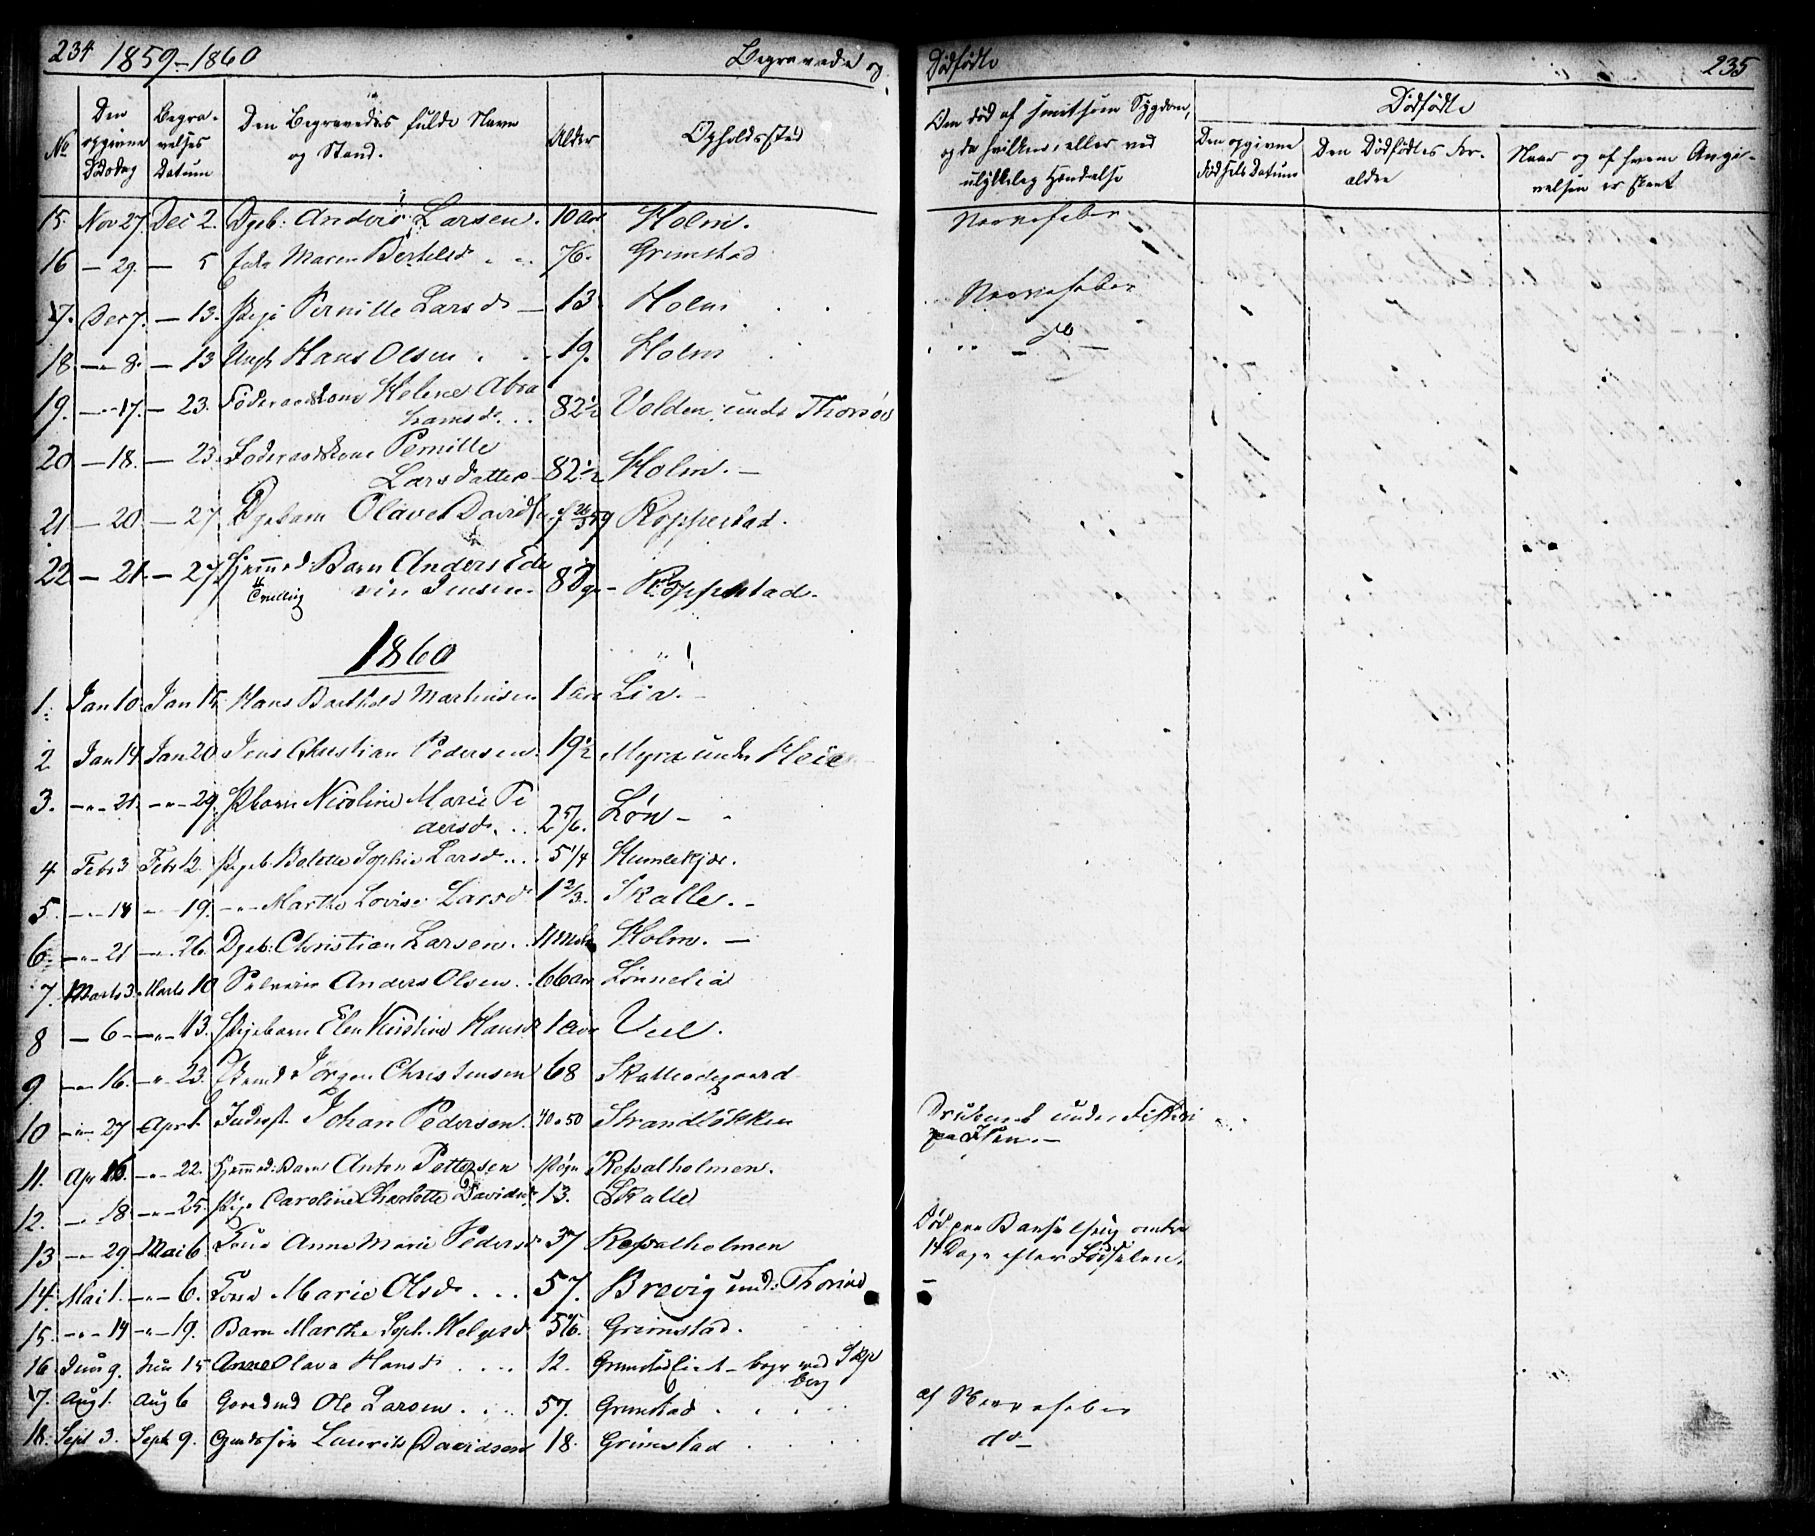 234 1859-1860 Begravede og
Dødfødte 235
No
Den opgivne Dødsdag
Begravelses Datum
Den Begravedes fulde Navn og Stand.
Alder
Opholdssted
Om død af smitsom Sygdom, og da hvilken, eller ved ulykkelig Hændelse
Dødfødte
Den opgivne Fødsels Datum
Den Dødfødtes Forældre
Naar og af hvem Angivelsen er skeet
15. Nov 27. Dec 2. Dgeb: Andreas Larsen. 10 aar Holm. Nervefeber
16 — 29. — 5 Maren Bertelsd. 7/6. Grimstad
17. Dec 7. — 13. Pige Pernille Larsd. — 13. Holm Nervefeber
18 — 8. — 13 Ungk Hans Olsen 19. Holm — do —
19. — 17. — 23. Føderaadskone Helene Abra
hamsd. 82½ Volden, unde Thorsø
20 — 18. — 23. Føderaadskone Pernille
Larsdatter 82½ Holm. —
21 — 20 — 27 Dgebarn Olaves Davids Roppestad.
22 — 21. — 27. Hjemmed: Barn Anders Ed
vin Jensen. 8 Dge — Roppestad.
Tvilling
1860
1. Jan 10. Jan 15. Hans Barthold Martinsen 1 aar Lia. —
2 Jan 14 Jan 20 Jens Christian Pedersen 19½ Myra under Heie
3. — 21. — 29. Pbarn Nicoline Marie Pe
dersd. 2 5/6. Løn —
4 Feb 3 Febr 12. Pigeb. Bolette Sophie Larsd. 5¼ Humlekjær.
5. — 14 — 19. — Marthe Lovise Larsd 1 2/3. Skalle. —
6. — 21 — 26. Dgeb: Christian Larsen. Holm. —
7. Marts 3. Marts 10 Anders Olsen 66 aar Lønnelia
8 — 6 — 13. Pigebarn Elen Kirstine Hansd 1 aar Veel.
9 — 16. — 23. Jørgen Christensen 68 Skalleødegaard
10 — 27 Apr 1. Inderst. Johan Pedersen. 40 a 50 Strandløkken Druknet under Fiskeri
paa Isen. —
11. Apr 16. — 22. Hjemmed: Barn Anton Pettersen Døgn Refsalholmen.
12. — 18. — 25. Pige Caroline Charlotte Davidsd 13. Skalle
13 — 29. Mai 6. Kone Anne Marie Pedersd 37 Refsalholmen Død paa Barselseng omtr
14 Dage efter Fødselen.
14. Mai 1. — 6. Kone Marie Olsd. 57. Brevig und: Thorsø
15. — 14 — 19. Barn Marthe Soph. Helgesd 5/6. Grimstad.
16 Juni 9. Jun 15 Anne Olava Hansd. 12. Grimstadeiet — begr ved Skje
berg
17. Aug 1. Aug 6 Gaardmd Ole Larsen 57. Grimstad af Nervefeber
18. Sept 3. Sept 9. Gmdssøn Laurits Davidsen 18. Grimstad do —